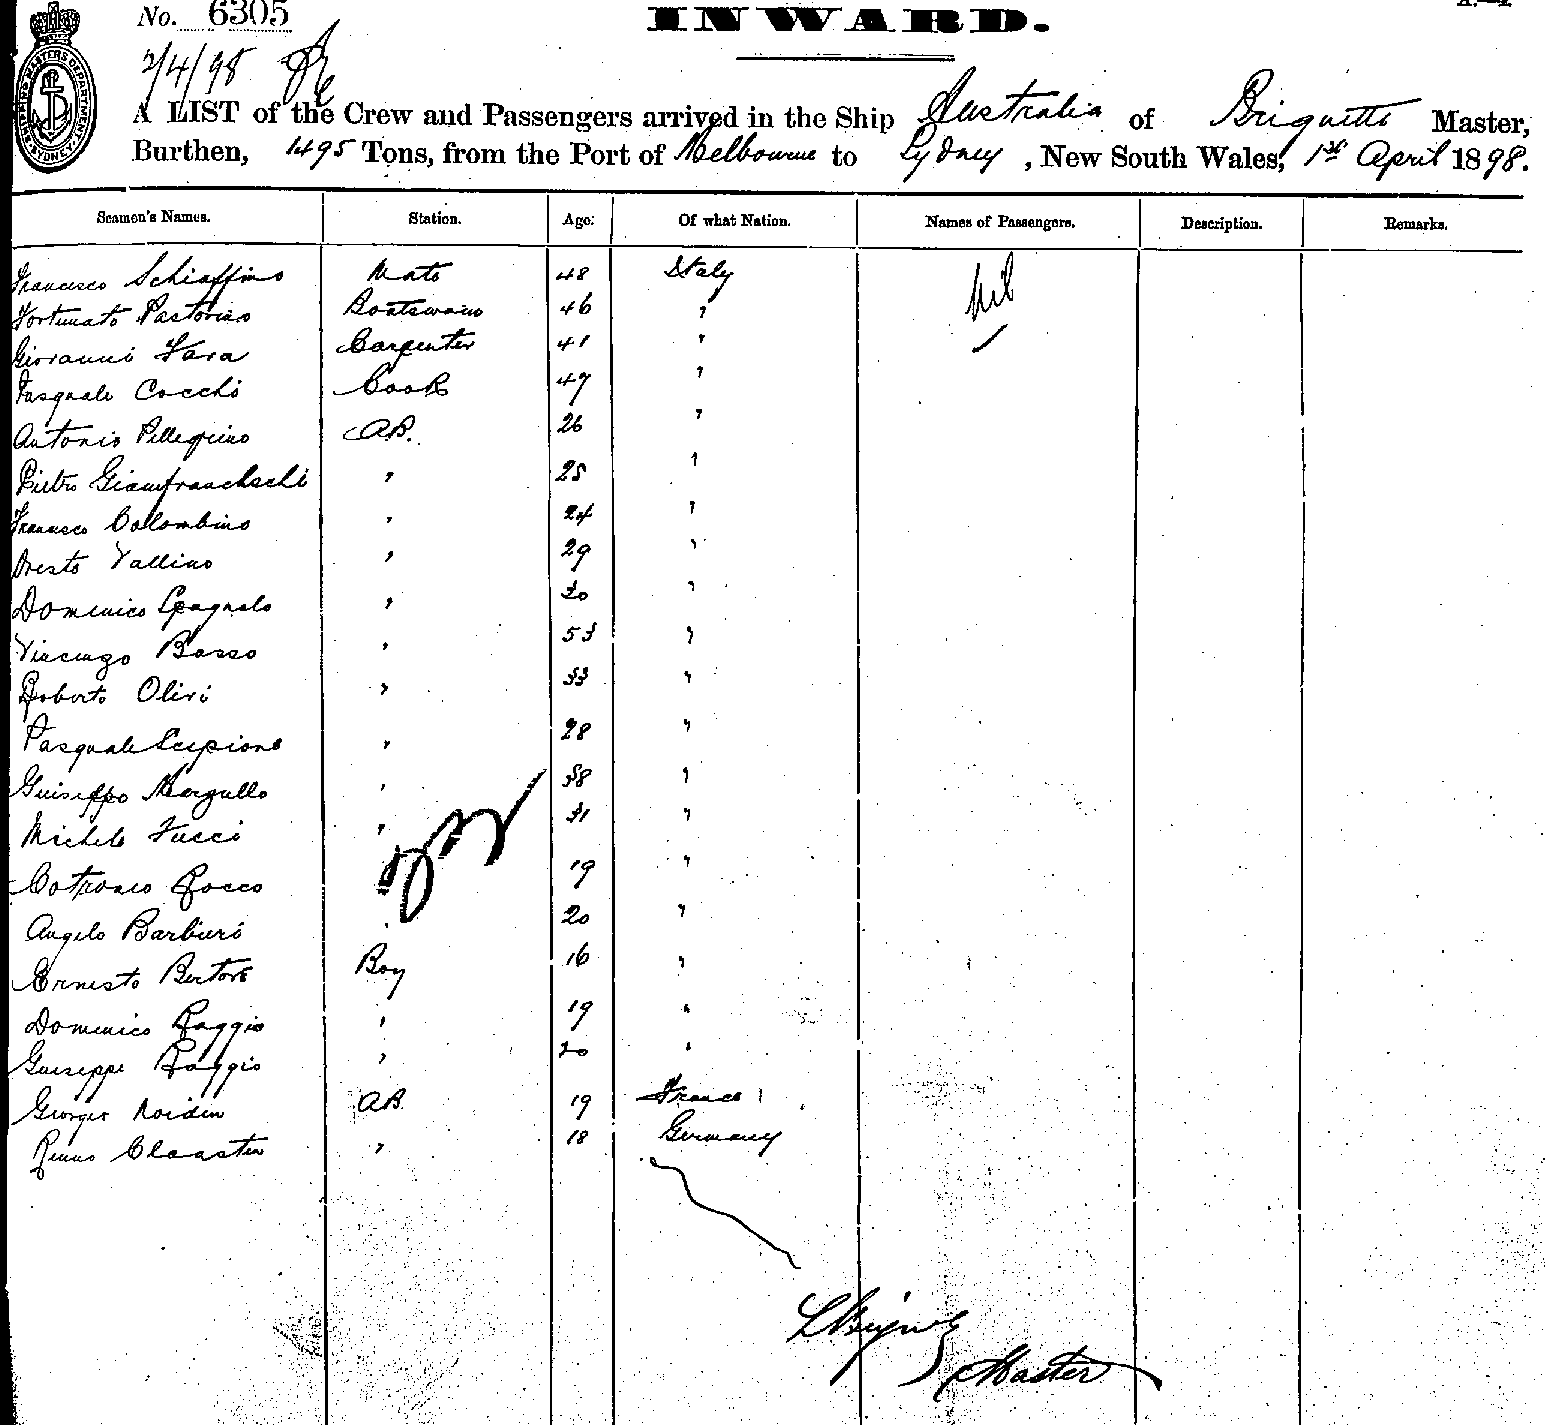 No. 6305
INWARD.
2/4/98
A LIST of the Crew and Passengers arrived in the Ship Australia of Brignetti Master,
Burthen, 1495 Tons, from the Port of Melbourne to Sydney, New South Wales, 1st April 1898.
Seamen's Names. Station. Age. Of what Nation. Names of Passengers. Description. Remarks.
Francesco Schiaffino Mate 48 Italy Nil
Fortunato Pastorino Boatswain 46 "
Giovanni Fara Carpenter 41 "
Pasquale Cocchi Cook 47 "
Antonio Pellegrino AB. 26 "
Pietro Gianfrancheschi " 25 "
Francesco Colombino " 24 "
Oreste Vallino " 29 "
Domenico Spagnolo " 30 "
Vincenzo Basso " 53 "
Roberto Oliri " 33 "
Pasquale Scipione " 28 "
Guiseppo Margullo " 38 "
Michele Fucci " 31 "
Cotroneo Rocco 19 "
Angelo Barbieri " 20 "
Ernesto Bertore Boy 16 "
Domenico Raggio " 19 "
Guiseppe Raggio " 20 "
Georges AB 19 France
Claasten " 18 Germany
Master